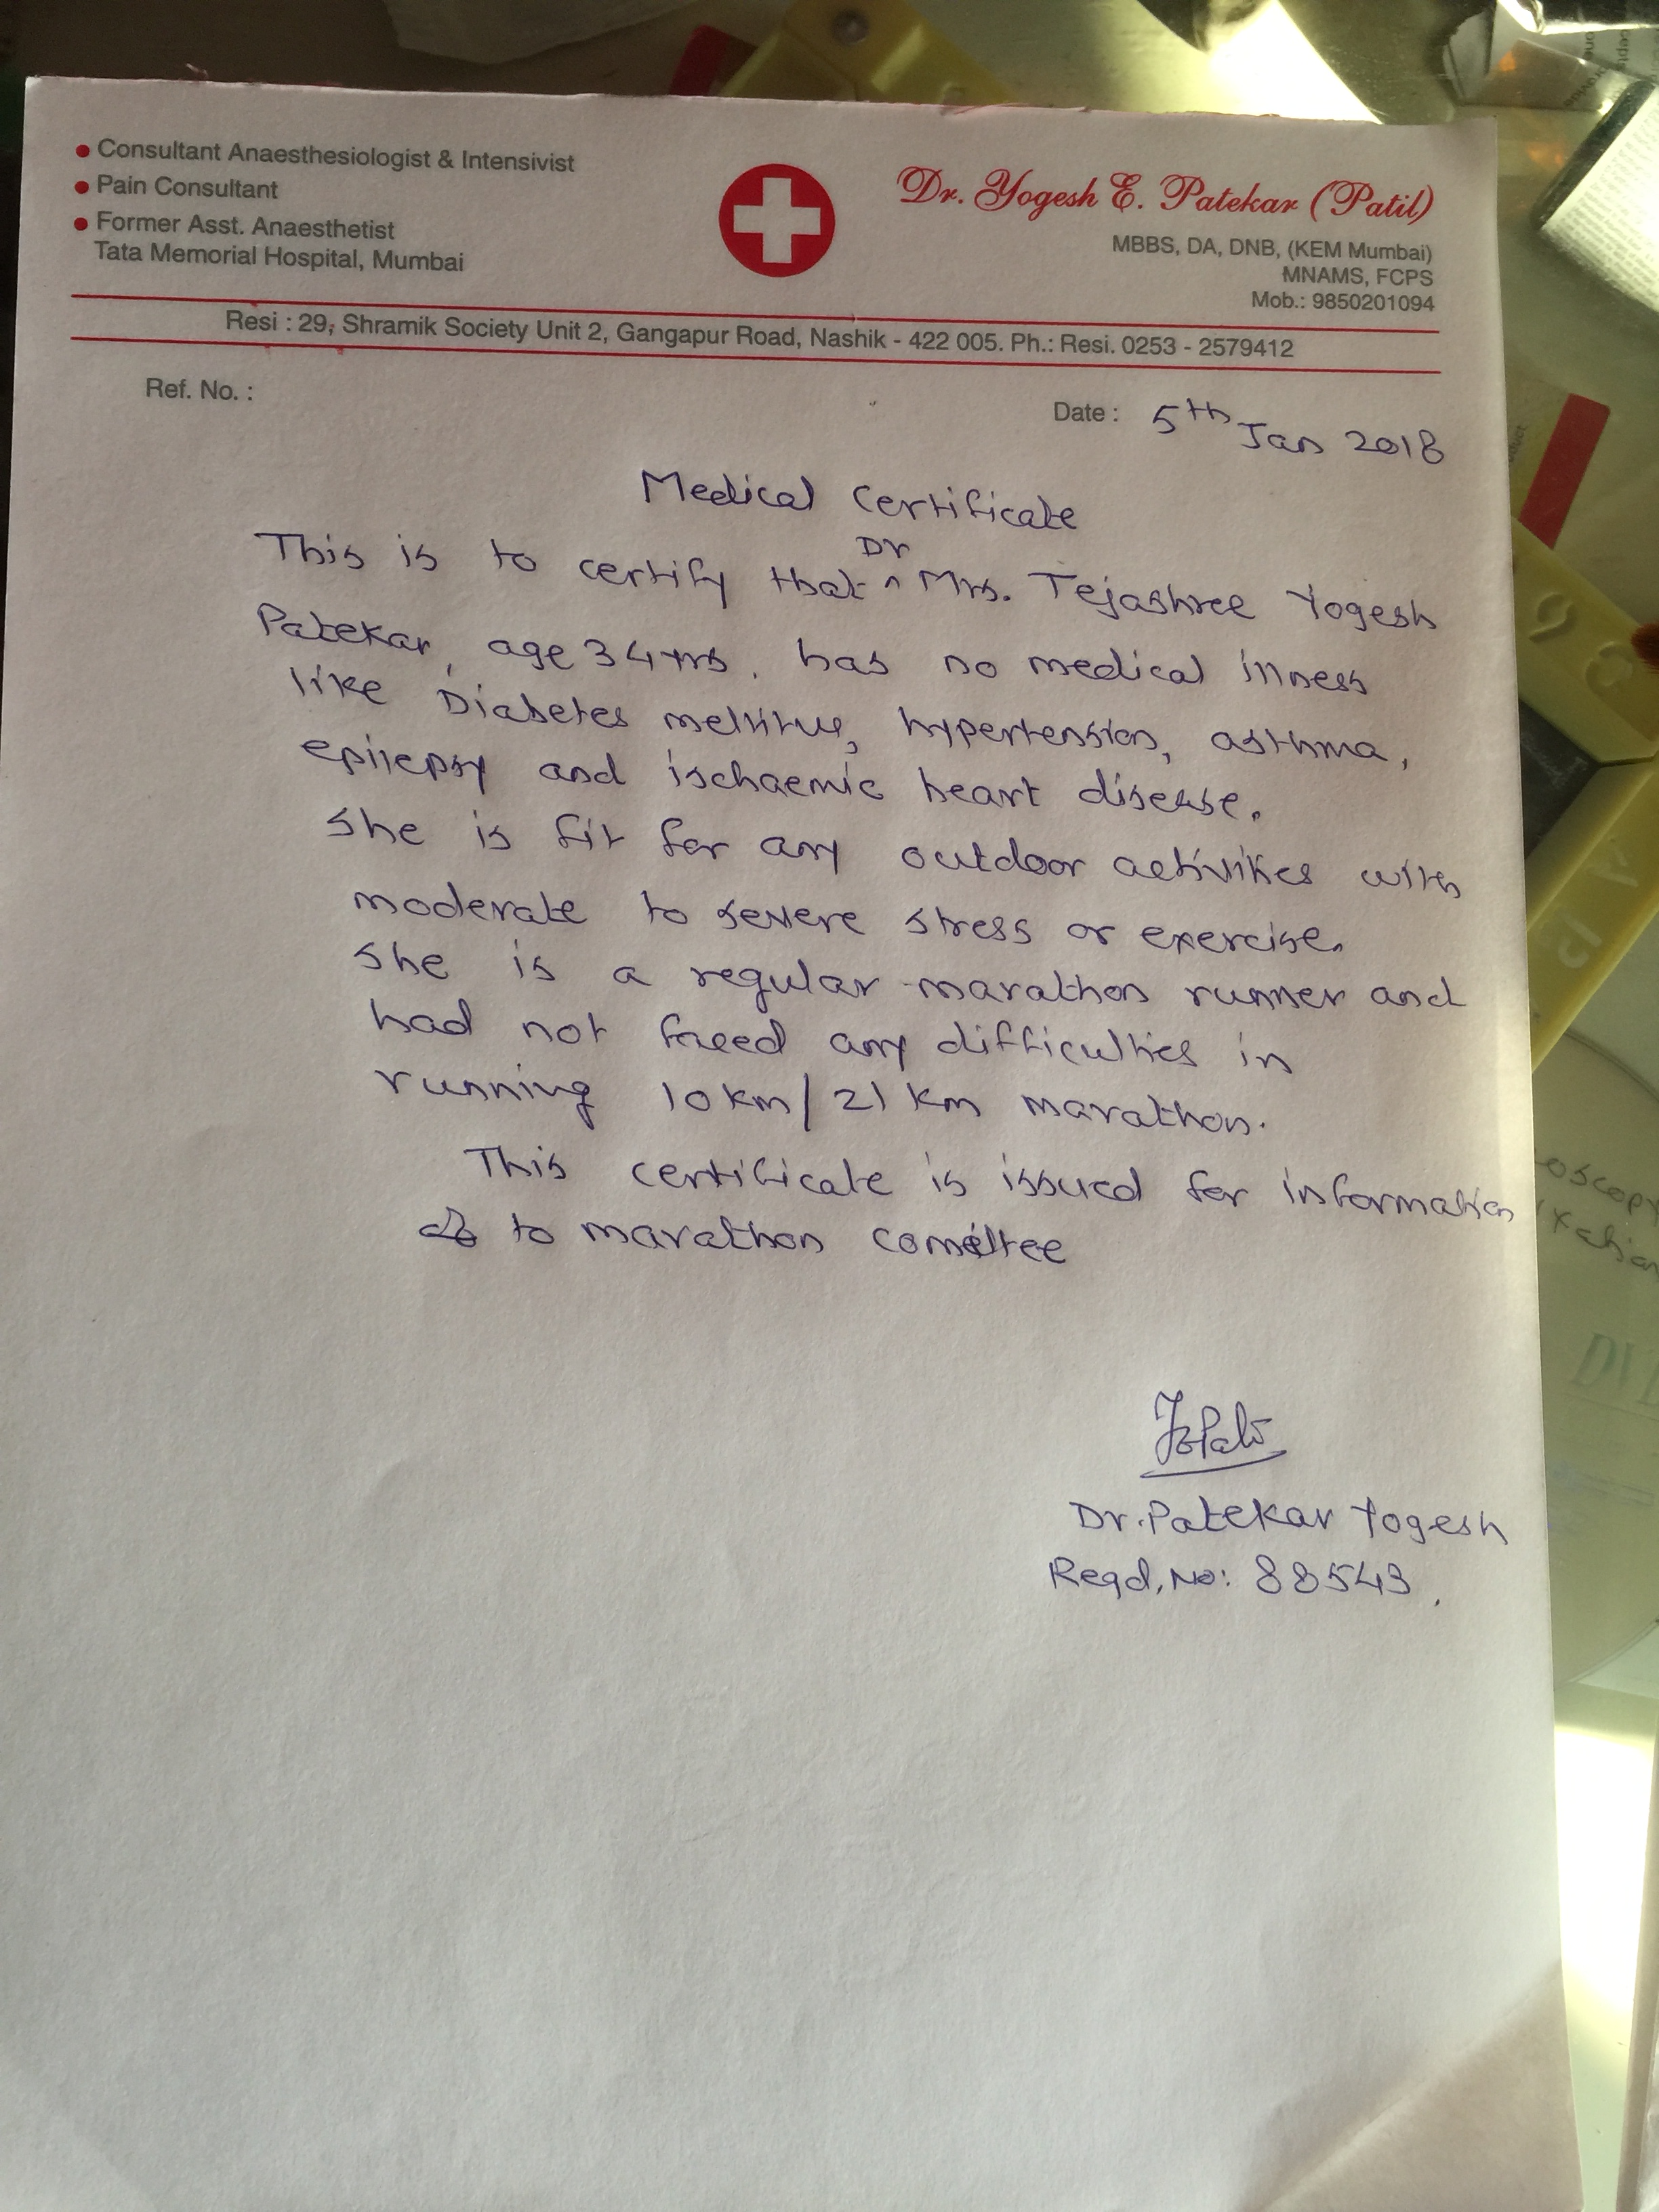 • Consultant Anaesthesiologist & Intensivist
• Pain Consultant
• Former Asst. Anaesthetist
Tata Memorial Hospital, Mumbai
Dr. Yogesh E. Patekar (Patil)
MBBS, DA, DNB, (KEM Mumbai)
MNAMS, FCPS
Mob.: 9850201094
Resi : 29, Shramik Society Unit 2, Gangapur Road, Nashik - 422 005. Ph.: Resi. 0253 - 2579412
Ref. No. :
Date : 5th Jan 2018
Medical Certificate
This is to certify that Dr Mrs. Tejashree Yogesh
Patekar, age 34 yrs. has no medical illness
like Diabetes mellitus, hypertension, asthma,
epilepsy and ischaemic heart disease.
She is fit for any outdoor activities with
moderate to severe stress or exercise.
She is a regular marathon runner and
had not faced any difficulties in
running 10 km/21 km marathon.
This certificate is issued for information
to marathon comittee
Dr. Patekar Yogesh
Regd, No: 88543.